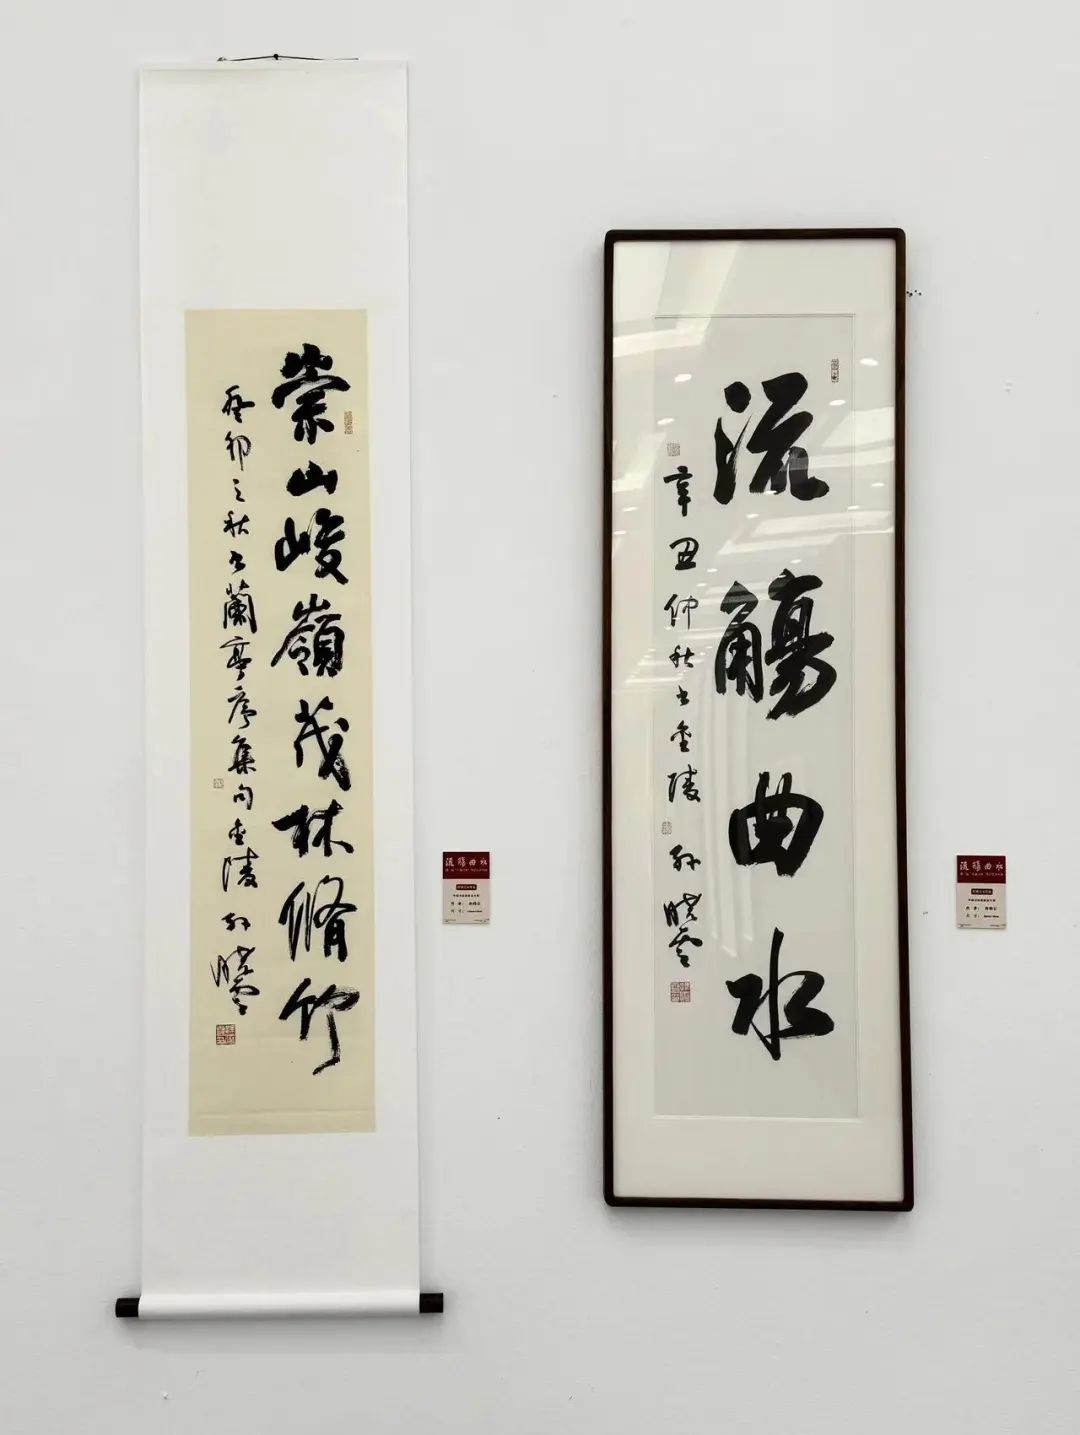 崇山峻嶺茂林脩竹
癸卯之秋書蘭亭序集句金陵孫曉雲
流觴曲水
辛丑仲秋書金陵孫曉雲
流觴曲水
流觴曲水